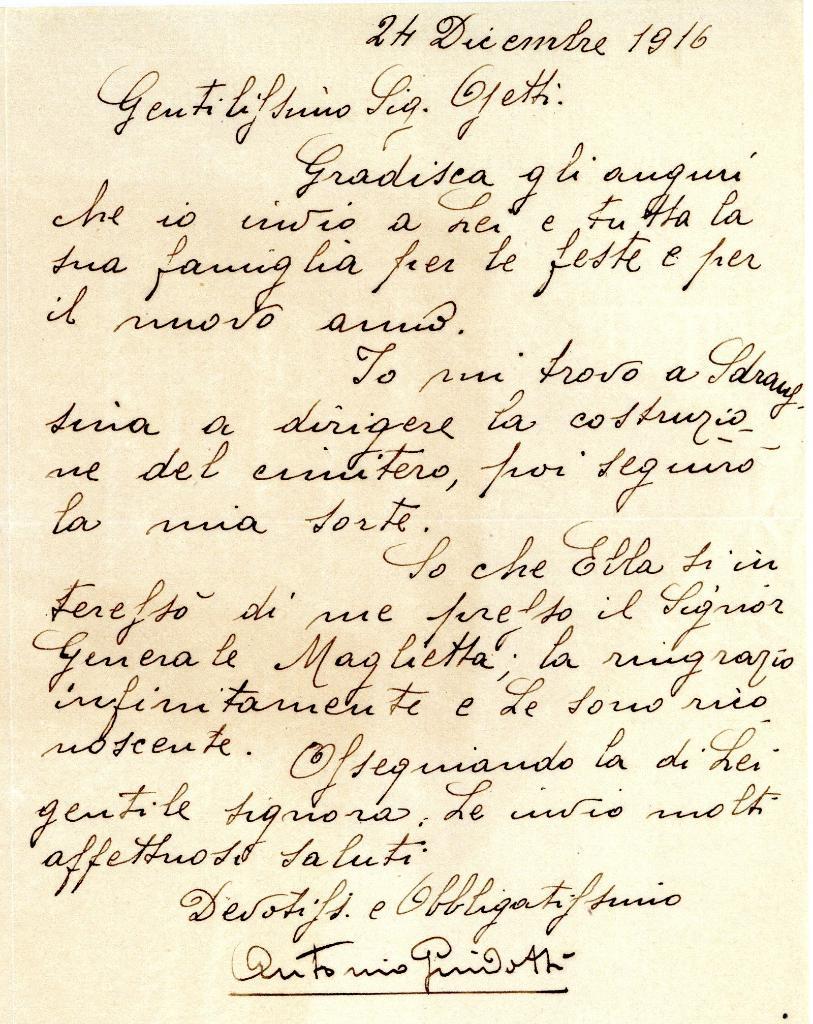 24 Dicembre 1916
Gentilissimo Sig. Ojetti.
Gradisca gli auguri
che io invio a Lei e tutta la
sua famiglia per le feste e per
il nuovo anno.
Io mi trovo a Sdraus-
sina a dirigere la costruzio-
ne del cimitero, poi seguirò
la mia sorte.
So che Ella si in
teressò di me presso il Signor
Generale Maglietta; la ringrazio
infinitamente e Le sono rico-
noscente. Ossequiando la di Lei
gentile signora, Le invio molti
affettuosi saluti
Devotiss. e Obbligatissimo
Antonio Guidotti